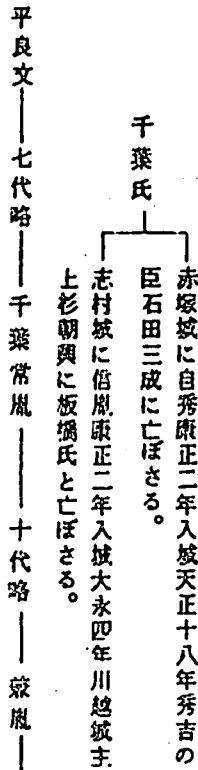 千葉氏
赤塚城に自秀康正二年入城天正十八年秀吉の
臣石田三成に亡ぼさる。
志村城に信胤康正二年入城大永四年川越城主
上杉朝興に板橋氏と亡ぼさる。
平良文――七代略――千葉常胤――十代略――兼胤